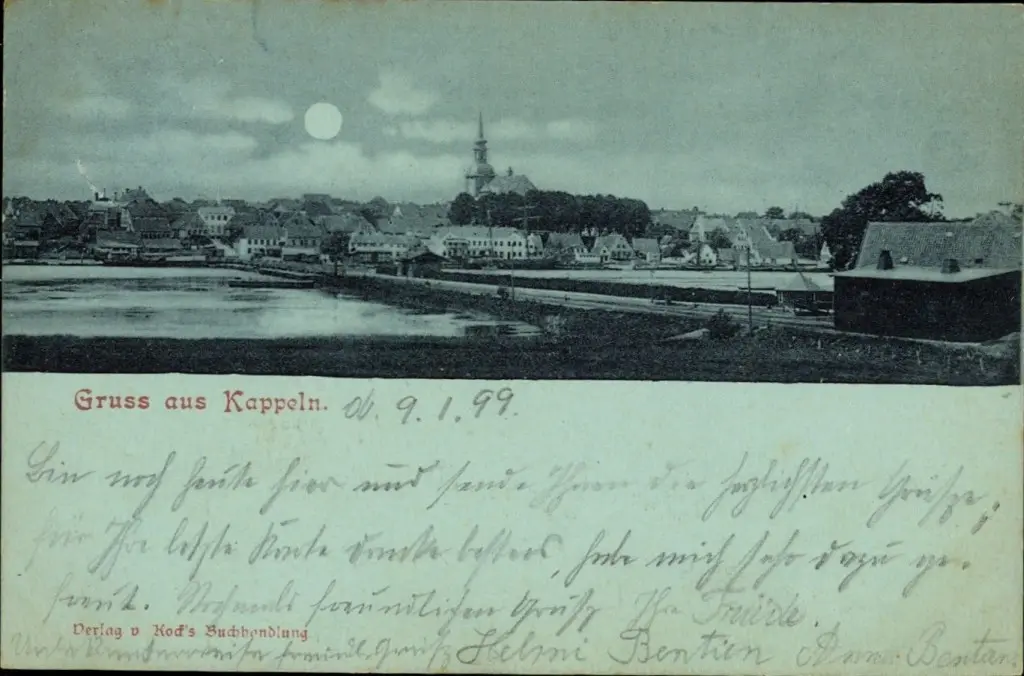 Gruss aus Kappeln. d. 9.1.99.
Bin noch heute hier und sende Ihnen die herzlichsten Grüsse,
für Ihre letzte Karte danke bestens, habe mich sehr dazu ge-
freut. Nochmals freundlichen Gruss Ihr
Verlag v Kock's Buchhandlung
freundl. Gruss Helmi Bentien